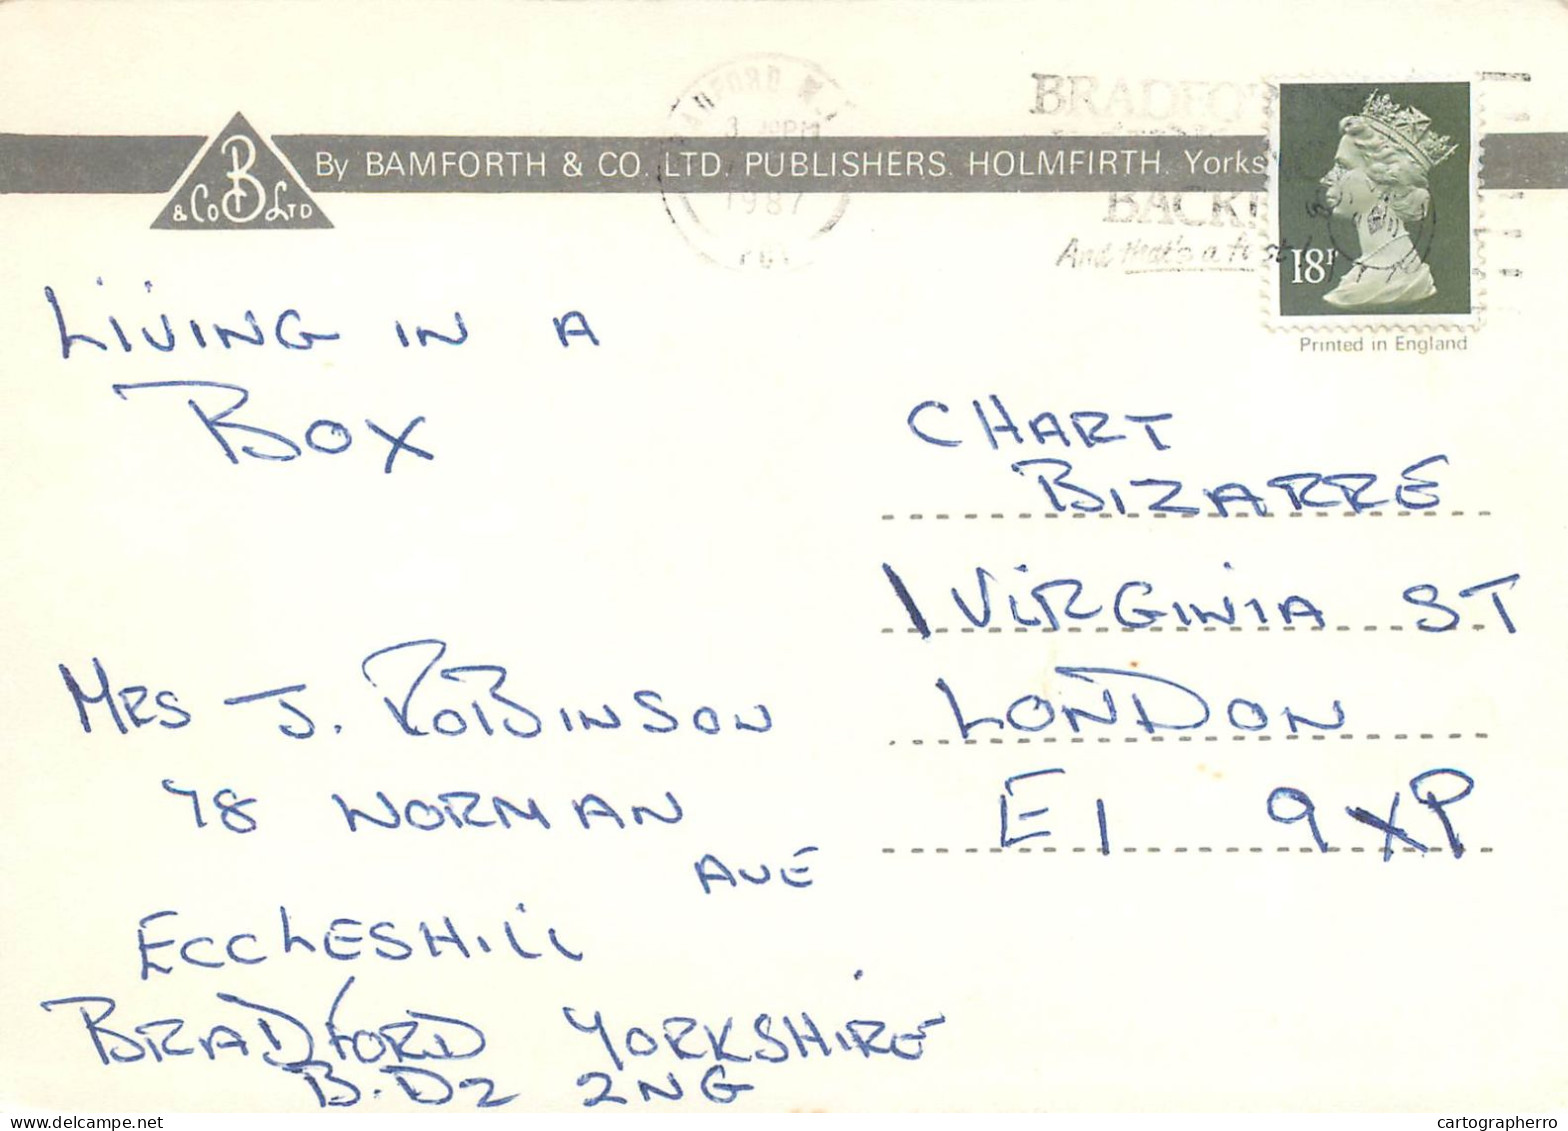 B
& Co LTD
By BAMFORTH & CO. LTD. PUBLISHERS. HOLMFIRTH. Yorks
1987
BRADFO
BACK
And that's a first!
18P
Printed in England
LIVING IN A
BOX
CHART
BIZARRE
1 VIRGINIA ST
LONDON
E1 9XP
MRS J. ROBINSON
78 NORMAN
AVE
ECCLESHILL
BRADFORD YORKSHIRE
B.D2 2NG
cartographerro